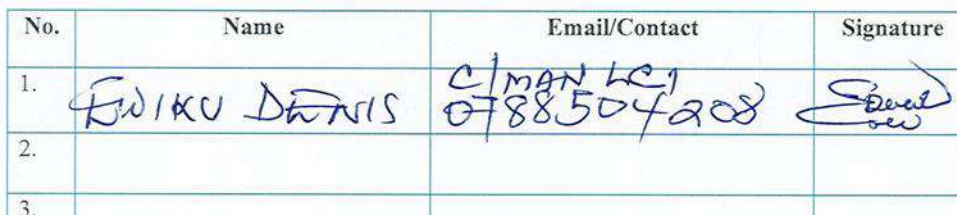 No. Name Email/Contact Signature
1. ENIKU DENIS C/MAN LC1 0788504208
2.
3.